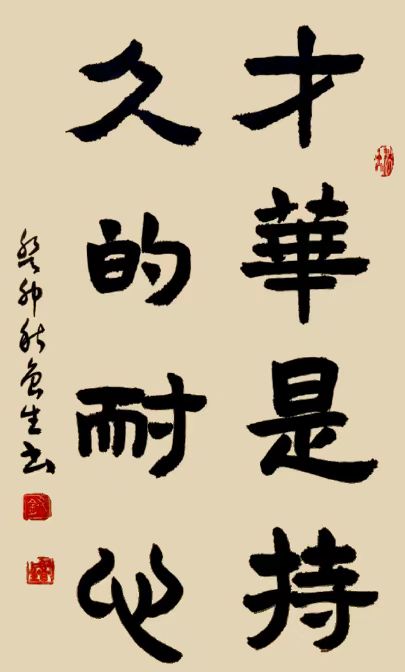 才華是持
久的耐心
癸卯秋魚生书